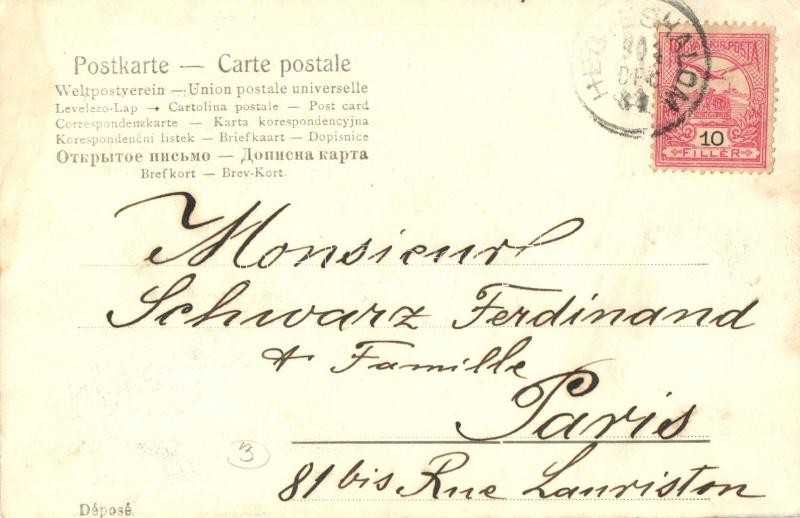 Postkarte — Carte postale
Weltpostverein — Union postale universelle
Levelező-Lap — Cartolina postale — Post card
Correspondenzkarte — Karta korespondencyjna
Korespondenční listek — Briefkaart — Dopisnice
Открытое письмо — Дописна карта
Brefkort — Brev-Kort.
HEGYESHALOM
MAGYAR KIR. POSTA
10
FILLÉR
Monsieur
Schwarz Ferdinand
& Famille
Paris
81 bis Rue Lauriston
3
Déposé.